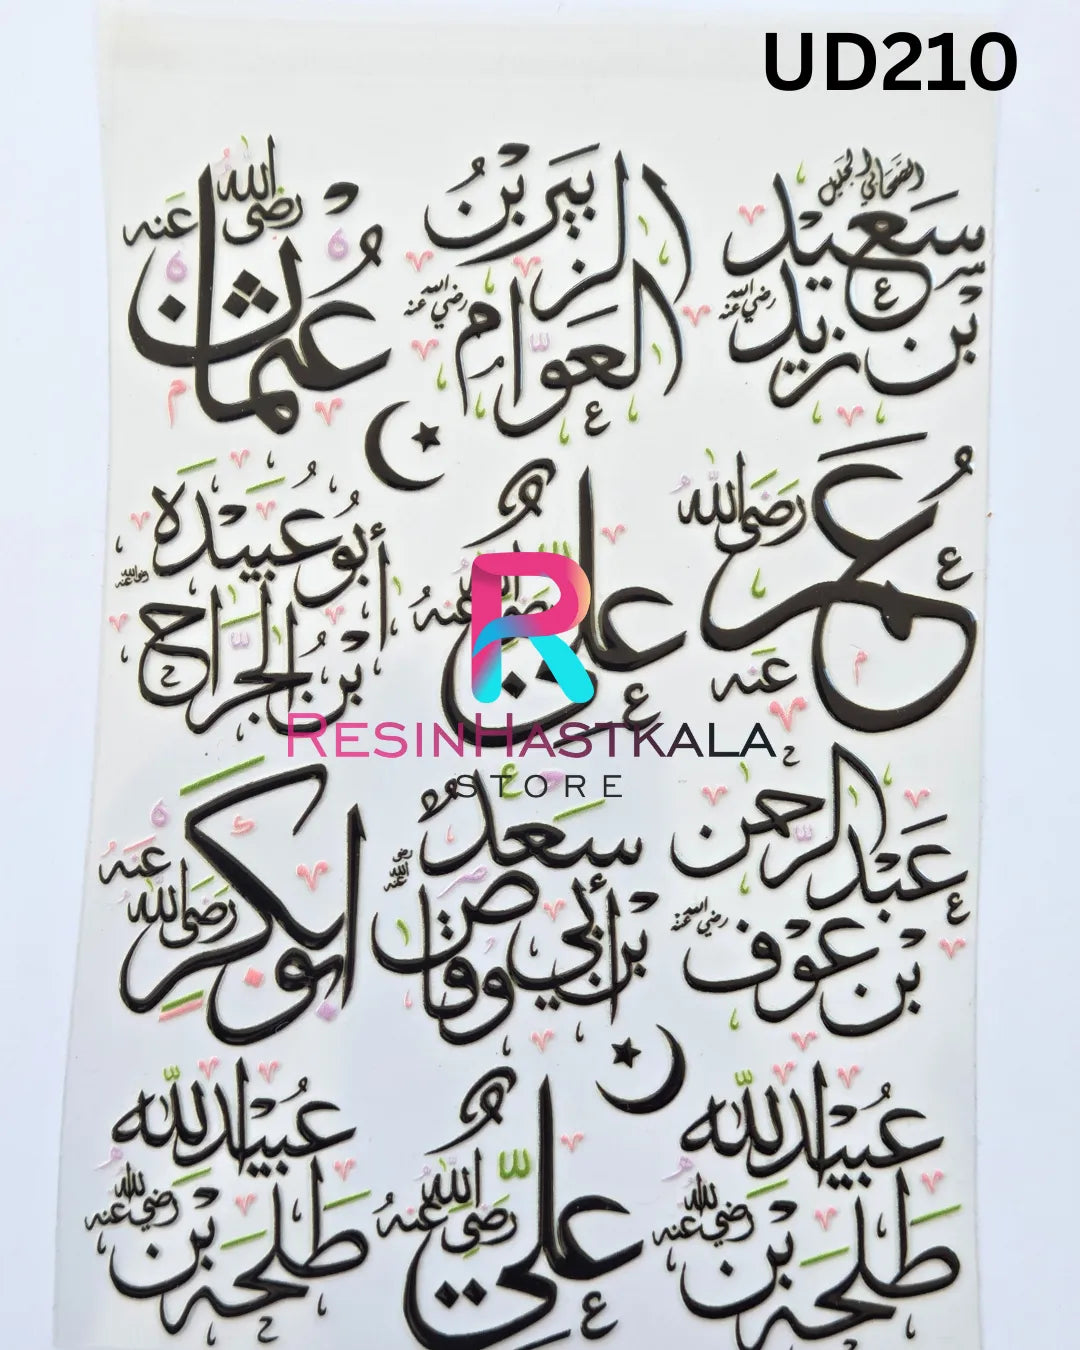 UD210
الصحابي الجليل
سَعِيد
بن زيد
رضي الله عنه
الزبير بن
العوام
رضي الله عنه
عُثمان
رضى الله عنه
عُمَر
رَضَى الله
عَنه
عليّ
رضى الله عنه
أبو عبيدة
ابن الجراح
رضي الله عنه
RESINHASTKALA
STORE
عبد الرحمن
بن عوف
رضي الله عنه
سعد
بن أبي وقاص
رضي الله عنه
ابو بكر
رَضَى الله
عَنه
عبيد الله
بن طلحه
رضي الله عنه
عليّ
رضى الله عنه
عبيد الله
بن طلحه
رضي الله عنه